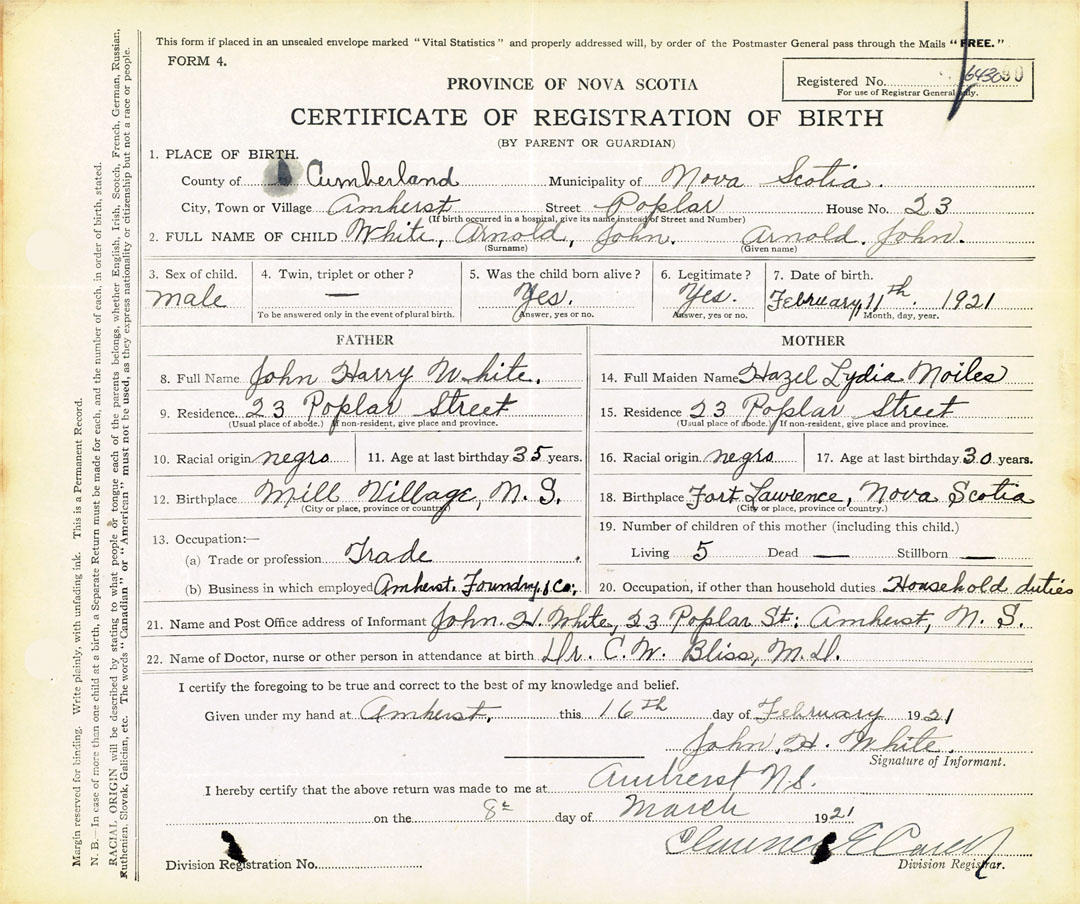 This form if placed in an unsealed envelope marked "Vital Statistics" and properly addressed will, by order of the Postmaster General pass through the Mails "FREE."
FORM 4.
Registered No.
For use of Registrar General only.
PROVINCE OF NOVA SCOTIA
CERTIFICATE OF REGISTRATION OF BIRTH
(BY PARENT OR GUARDIAN)
1. PLACE OF BIRTH.
County of Cumberland Municipality of Nova Scotia.
City, Town or Village Amherst Street Poplar House No. 23
(If birth occurred in a hospital, give its name instead of Street and Number)
2. FULL NAME OF CHILD White, Arnold, John. Arnold. John.
(Surname) (Given name)
3. Sex of child. 4. Twin, triplet or other? 5. Was the child born alive? 6. Legitimate? 7. Date of birth.
male — Yes. Yes. February 11th. 1921
To be answered only in the event of plural birth. Answer, yes or no. Answer, yes or no. Month, day, year.
FATHER
8. Full Name John Harry White.
9. Residence. 23 Poplar Street
(Usual place of abode.) If non-resident, give place and province.
10. Racial origin negro 11. Age at last birthday 35 years.
12. Birthplace Mill Village, N. S.
(City or place, province or country)
13. Occupation:—
(a) Trade or profession Trade
(b) Business in which employed Amherst. Foundry, & Co.
MOTHER
14. Full Maiden Name Hazel Lydia Moiles
15. Residence 23 Poplar Street
(Usual place of abode.) If non-resident, give place and province.
16. Racial origin negro 17. Age at last birthday 30 years.
18. Birthplace Fort Lawrence, Nova Scotia
(City or place, province or country.)
19. Number of children of this mother (including this child.)
Living 5 Dead — Stillborn —
20. Occupation, if other than household duties Household duties
21. Name and Post Office address of Informant John. H. White, 23 Poplar St: Amherst, N. S.
22. Name of Doctor, nurse or other person in attendance at birth Dr. C. W. Bliss, M. D.
I certify the foregoing to be true and correct to the best of my knowledge and belief.
Given under my hand at Amherst, this 16th day of February 1921
John. H. White.
Signature of Informant.
I hereby certify that the above return was made to me at Amherst N.S.
on the 8th day of March 1921
Clarence E
Division Registration No. Division Registrar.
Margin reserved for binding. Write plainly, with unfading ink. This is a Permanent Record.
N. B.—In case of more than one child at a birth, a Separate Return must be made for each, and the number of each, in order of birth, stated.
RACIAL ORIGIN will be described by stating to what people or tongue each of the parents belongs, whether English, Irish, Scotch, French, German, Russian,
Ruthenian, Slovak, Galician, etc. The words "Canadian" or "American" must not be used, as they express nationality or citizenship but not a race or people.